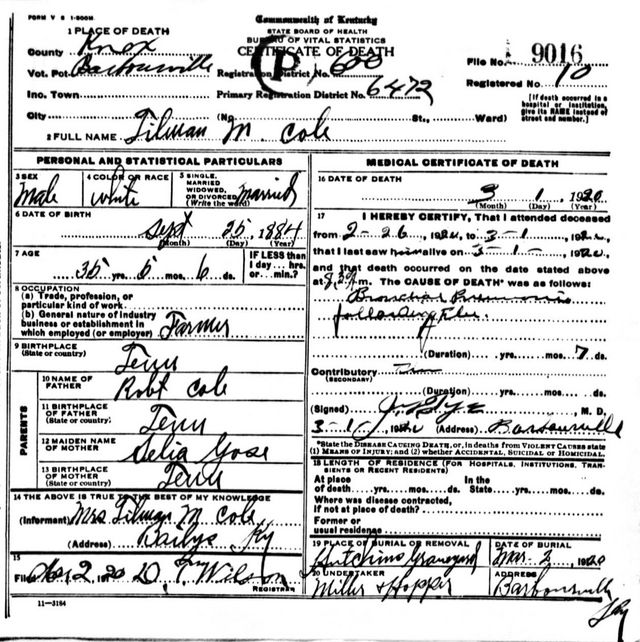 FORM V S 1-500M
Commonwealth of Kentucky
STATE BOARD OF HEALTH
BUREAU OF VITAL STATISTICS
CERTIFICATE OF DEATH
1 PLACE OF DEATH
County Knox
Vot. Pct. Barbourville
Inc. Town
City
Registration District No. 600
Primary Registration District No. 6472
(No. St., Ward)
File No. 9016
Registered No. 10
[If death occurred in a
hospital or institution,
give its NAME instead of
street and number.]
2 FULL NAME Tilman M. Cole
PERSONAL AND STATISTICAL PARTICULARS
3 SEX
Male
4 COLOR OR RACE
White
5 SINGLE,
MARRIED
WIDOWED,
OR DIVORCED
(Write the word)
Married
6 DATE OF BIRTH
Sept 25, 1884
(Month) (Day) (Year)
7 AGE
35 yrs. 5 mos. 6 ds.
IF LESS than
1 day... hrs.
or... min.?
8 OCCUPATION
(a) Trade, profession, or
particular kind of work
(b) General nature of industry
business or establishment in
which employed (or employer) Farmer
9 BIRTHPLACE
(State or country) Tenn
PARENTS
10 NAME OF
FATHER Robt Cole
11 BIRTHPLACE
OF FATHER
(State or country) Tenn
12 MAIDEN NAME
OF MOTHER Delia Gose
13 BIRTHPLACE
OF MOTHER
(State or country) Tenn
14 THE ABOVE IS TRUE TO THE BEST OF MY KNOWLEDGE
(Informant) Mrs Tilman M. Cole
(Address) Bailys Ky
15
Filed Mar 2, 1920 D. T. Wilson
REGISTRAR
11-3184
MEDICAL CERTIFICATE OF DEATH
16 DATE OF DEATH
3 1, 1920
(Month) (Day) (Year)
17 I HEREBY CERTIFY, That I attended deceased
from 2-26, 1920, to 3-1, 1920,
that I last saw him alive on 3-1-, 1920,
and that death occurred on the date stated above
at m. The CAUSE OF DEATH* was as follows:
Bronchial Pneumonia
following flu
(Duration) yrs. mos. 7 ds.
Contributory
(SECONDARY)
(Duration) yrs. mos. ds.
(Signed) M. D.
3-1, 1920 (Address) Barbourville
*State the DISEASE CAUSING DEATH, or, in deaths from VIOLENT CAUSES state
(1) MEANS OF INJURY; and (2) whether ACCIDENTAL, SUICIDAL OR HOMICIDAL.
18 LENGTH OF RESIDENCE (FOR HOSPITALS, INSTITUTIONS, TRANSIENTS OR RECENT RESIDENTS)
At place
of death yrs. mos. ds.
In the
State yrs. mos. ds.
Where was disease contracted,
if not at place of death?
Former or
usual residence
19 PLACE OF BURIAL OR REMOVAL
Hutchins Graveyard
DATE OF BURIAL
Mar 2, 1920
20 UNDERTAKER
Miller & Hopper
ADDRESS
Barbourville
Ky